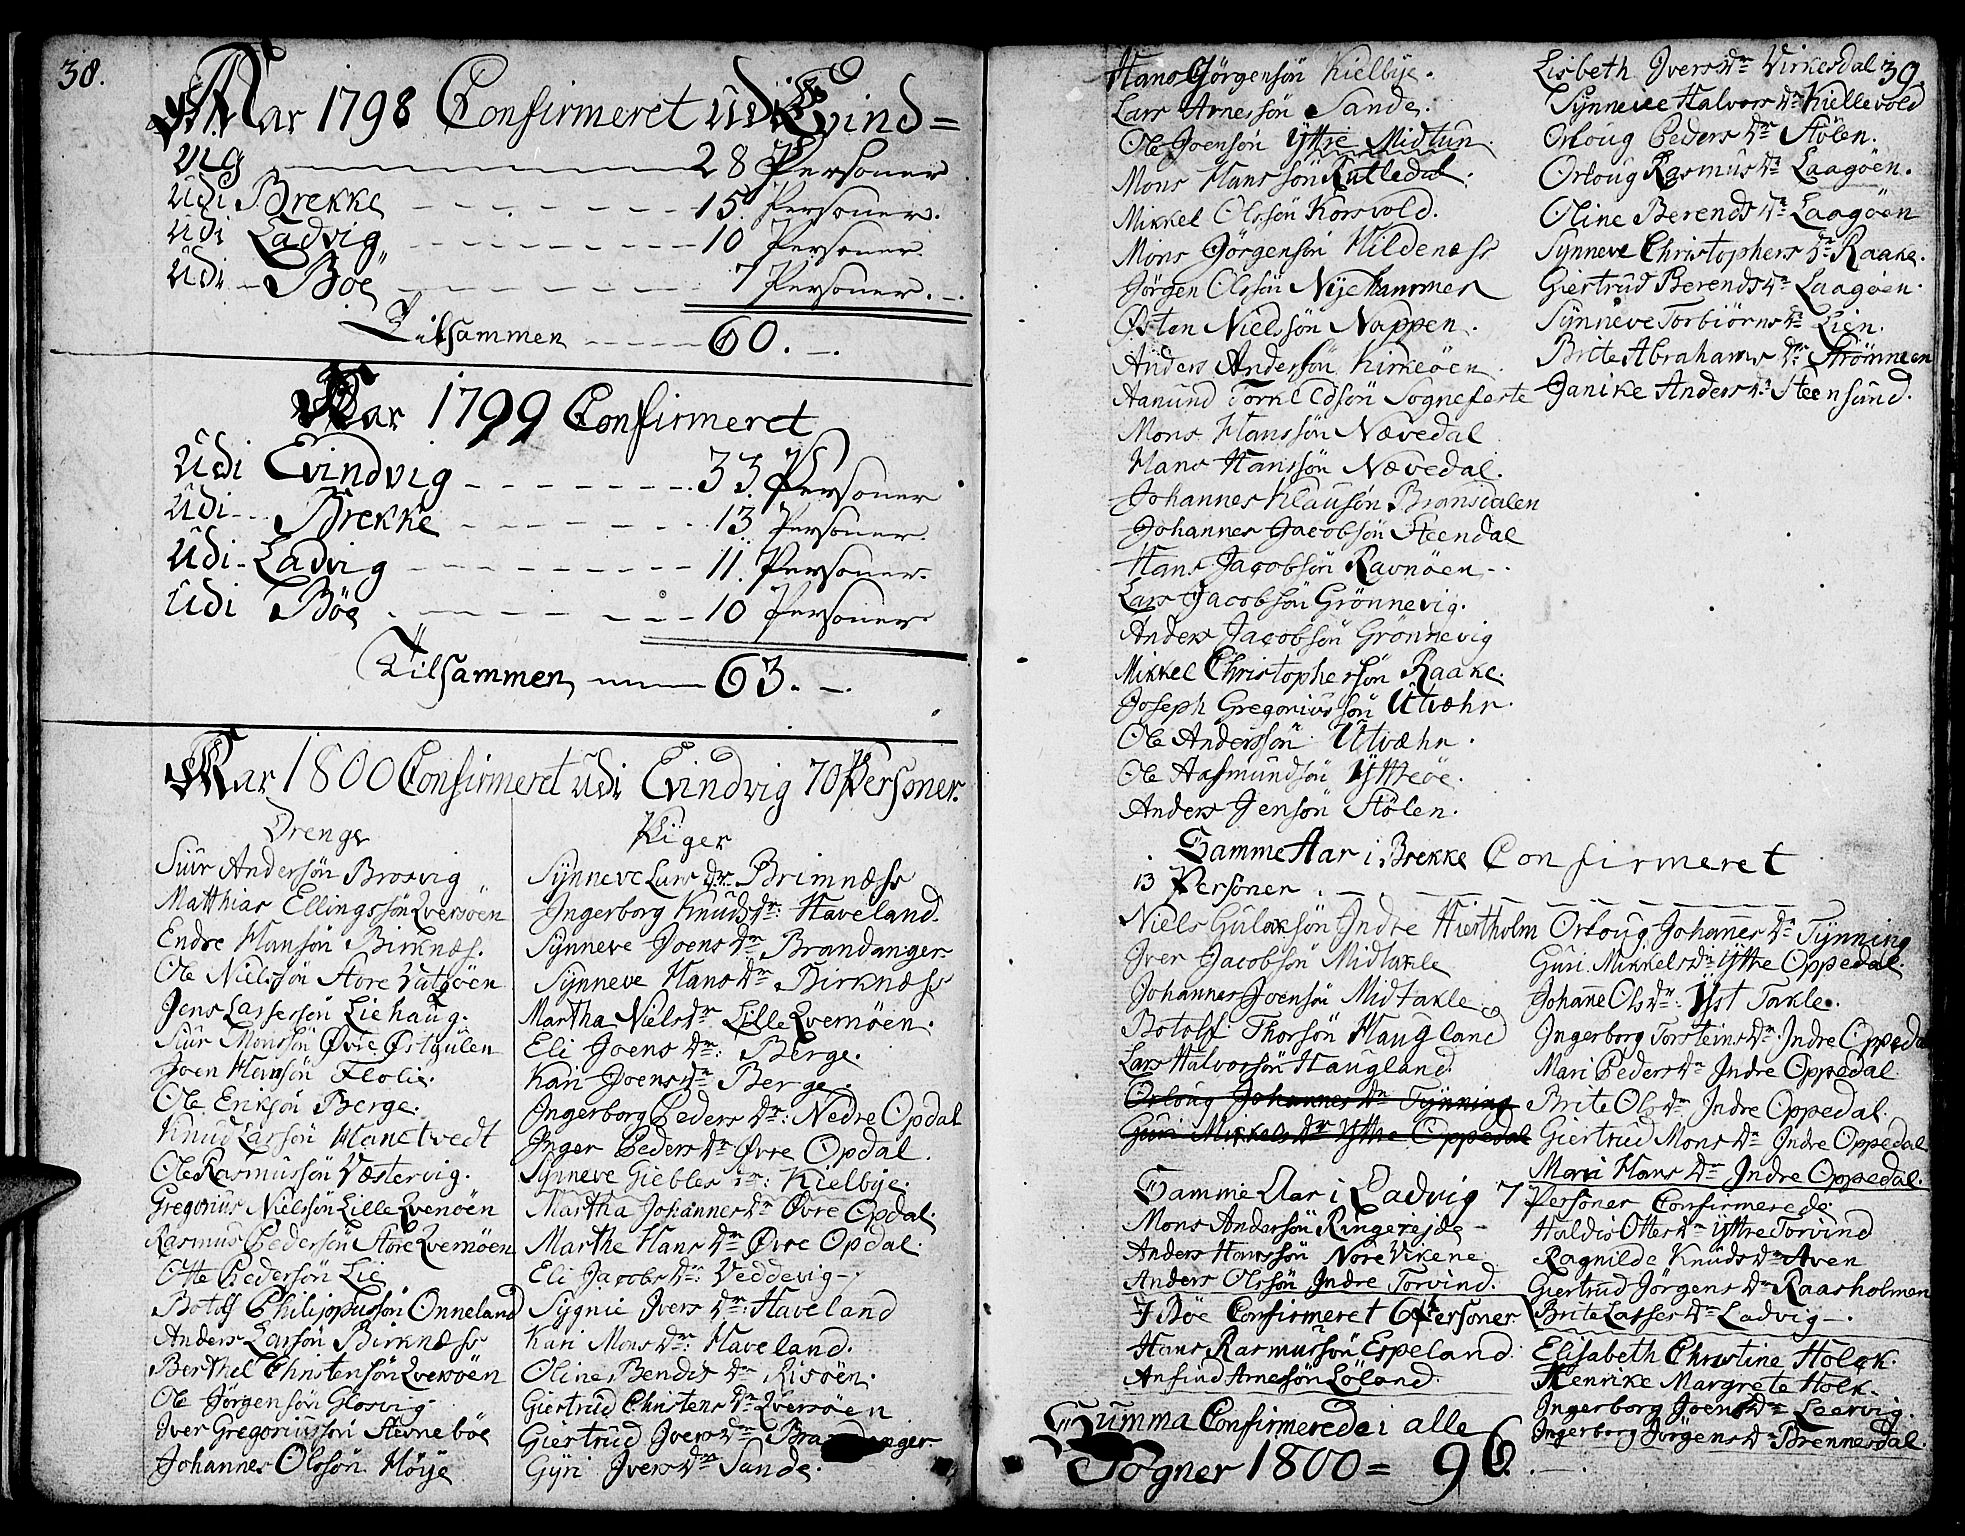 38.
Aar 1798 Confirmeret udi Evind=
vig 28 Personer
Udi Brekke 15 Personer.
Udi Ladvig 10 Personer.
Udi Böe 7 Personer.
Tilsammen 60.
Aar 1799 Confirmeret
Udi Evindvig 33 Personer
Udi Brekke 13 Personer.
Udi Ladvig 11. Personer.
Udi Böe 10 Personer.
Tilsammen 63.
Aar 1800 Confirmeret udi Evindvig 70 Personer.
Drenge
Siur Andersön Brosvig
Matthias Ellingssön Qversöen
Endre Hansön Birknæs.
Ole Nielssön Store
Jens Lassesön Liehaug.
Siur Monssön Øvre Østgulen
Joen Hansön Flolie.
Ole Eriksön Berge.
Knud Larsön
Ole Rasmussön Væstervig.
Gregorius Nielssön Lille Qvernöen
Rasmus Pedersön Store Qvernöen
Otte Pedersön Lie
Botolf Philippussön Önneland
Anders Larsön Birknæss
Berthel Christensön Qversöen
Ole Jörgensön Glosvig.
Iver Gregoriussön Stevneböe
Johannes Olssön Höije
Piger
Synneve Lars dr. Brimnæss
Ingerborg Knuds dr: Haveland.
Synneve Joens dr Brandanger
Synneve Hans dr Birknæss
Martha Niels dr Lille Qvernöen.
Eli Joens dr: Berge.
Kari Joens dr Berge.
Ingerborg Peders dr: Nedre Opdal
Inger Peders dr Øvre Opdal.
Synneve Giebles dr: Kielbye.
Martha Johannes dr Øvre Opdal.
Marthe Hans dr Øvre Opdal.
Eli Jacobs dr: Veddevig
Sygnie Ivers dr: Haveland
Kari Mons dr: Haveland.
Oline Bendis dr Risöen.
Giertrud Christens dr Qversöen
Giertrud Ivers dr Brandanger
Gyri Ivers dr Sande.
Hans Jörgensön Kielbye.
Lars Arnessön Sande.
Ole Joensön Yttre Midtun.
Mons Hanssön Rutledal.
Mikkel Olssön Korsvold.
Mons Jörgensön Hildenæss
Jörgen Olssön Nyehammer
Østen Nielssön Nappen.
Anders Andersön Kirkeöen.
Aamund Torkeldsön Sognefeste
Mons Hanssön Nævedal
Hans Hanssön Nævedal.
Johannes Klausön Bransdalen
Johannes Jacobsön Steendal
Hans Jacobsön Ravnöen
Lars Jacobsön Grönnevig.
Anders Jacobsön Grönnevig
Mikkel Christophersön Raake.
Joseph Gregoriussön Utvæhr.
Ole Anderssön Utvæhr.
Ole Aasmundsön Ytteöe.
Anders Jensön Stölen.
Lisbeth Ivers dr Virkesdal 39.
Synneve Halvors dr Kiellevold
Orloug Peders dr Stölen.
Orloug Rasmus dr Laagöen.
Oline Berends dr Laagöen
Synneve Christophers dr Raake.
Giertrud Berends dr Laagöen.
Synneve Torbiörns dr Lien.
Brite Abrahams dr Strömmen
Janike Anders dr Steensund.
Samme Aar i Brekke Confirmeret
13 Personer.
Niels Gulaksön Indre Hiertholm
Iver Jacobsön Midtakle
Johannes Joensön Midtakle
Botolf Thorsön Haugland
Lars Halvorsön Haugland.
Orloug Johannes dr Tynning
Guri Mikkels dr Yttre Oppedal
Orloug Johannes dr Tynning
Guri Mikkels dr Yttre Oppedal.
Johane Ols dr: Yst Takle.
Ingerborg Torsteins dr. Indre Oppedal
Mari Peders dr Indre Oppedal
Brite Ols dr Indre Oppedal.
Giertrud Mons dr Indre Oppedal
Mari Hans dr Indre Oppedal.
Samme Aar i Ladvig 7 Personer Confirmerede:
Mons Andersön Ringereide
Anders Hanssön Nore Vikene
Anders Olssön Indre Torvind.
Haldis Ottes dr Yttre Torvind
Ragnilde Knuds dr Aven
Giertrud Jörgens dr Raasholmen
Brite Lasses dr Ladvig
I Böe Confirmeret 6 Personer
Hans Rasmussön Espeland.
Anfind Arnesön Löland.
Elisabeth Christine Holck.
Henrike Margrete Holk.
Ingerborg Joens dr Leervig.
Ingerborg Jörgens dr Brennesdal.
Summa Confirmerede i alle
Sogner 1800 = 96.